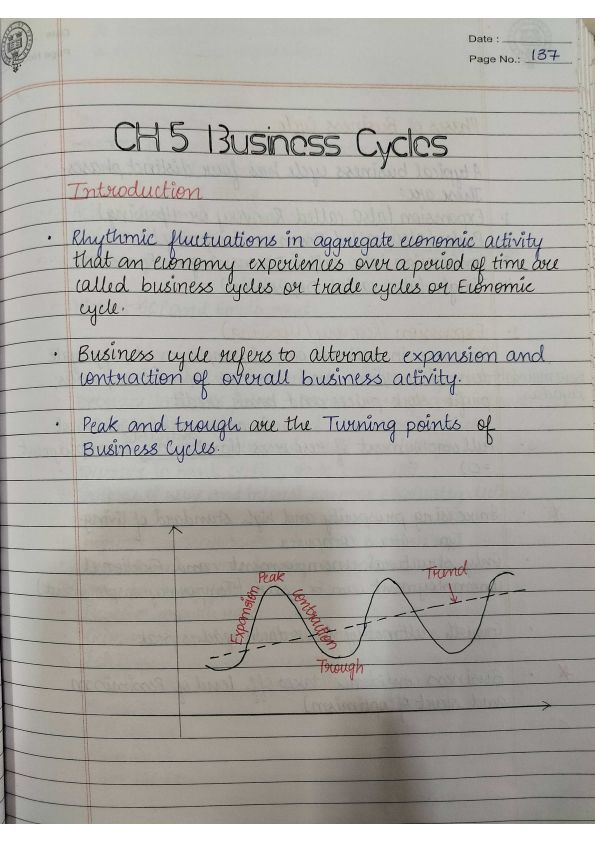 Date :
Page No.: 137
CH 5 Business Cycles
Introduction
• Rhythmic fluctuations in aggregate economic activity
that an economy experiences over a period of time are
called business cycles or trade cycles or Economic
cycle.
• Business cycle refers to alternate expansion and
contraction of overall business activity.
• Peak and trough are the Turning points of
Business Cycles.
Peak
Trend
Expansion
Contraction
Trough